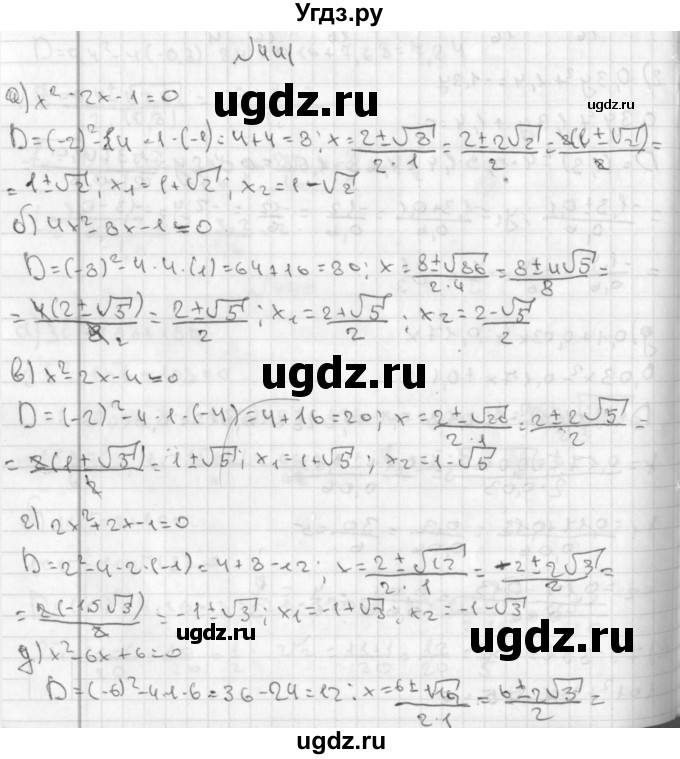 Угдз.ру
№441
а) x² - 2x - 1 = 0
ugdz.ru
ugdz.ru
D = (-2)² - 4 · 1 · (-1) = 4 + 4 = 8; x = (2 ± √8)/(2 · 1) = (2 ± 2√2)/2 = 2(1 ± √2)/2 =
= 1 ± √2; x₁ = 1 + √2; x₂ = 1 - √2
б) 4x² - 8x - 1 = 0
ugdz.ru
D = (-8)² - 4 · 4 · (1) = 64 + 16 = 80; x = (8 ± √80)/(2 · 4) = (8 ± 4√5)/8 =
= 4(2 ± √5)/8 2 = (2 ± √5)/2; x₁ = (2 + √5)/2; x₂ = (2 - √5)/2
в) x² - 2x - 4 = 0
ugdz.ru
D = (-2)² - 4 · 1 · (-4) = 4 + 16 = 20; x = (2 ± √20)/(2 · 1) = (2 ± 2√5)/2 =
= 2(1 ± √5)/2 = 1 ± √5; x₁ = 1 + √5; x₂ = 1 - √5
г) 2x² + 2x - 1 = 0
ugdz.ru
D = 2² - 4 - 2 · (-1) = 4 + 8 - 12; x = (2 ± √12)/(2 · 1) = (-2 ± 2√3)/2 =
= 2(-1 ± √3)/2 = -1 ± √3; x₁ = -1 + √3; x₂ = -1 - √3
ugdz.ru
ugdz.ru
д) x² - 6x + 6 = 0
D = (-6)² - 4 · 1 · 6 = 36 - 24 = 12; x = (6 ± √12)/(2 · 1) = (6 ± 2√3)/2 =
ugdz.ru